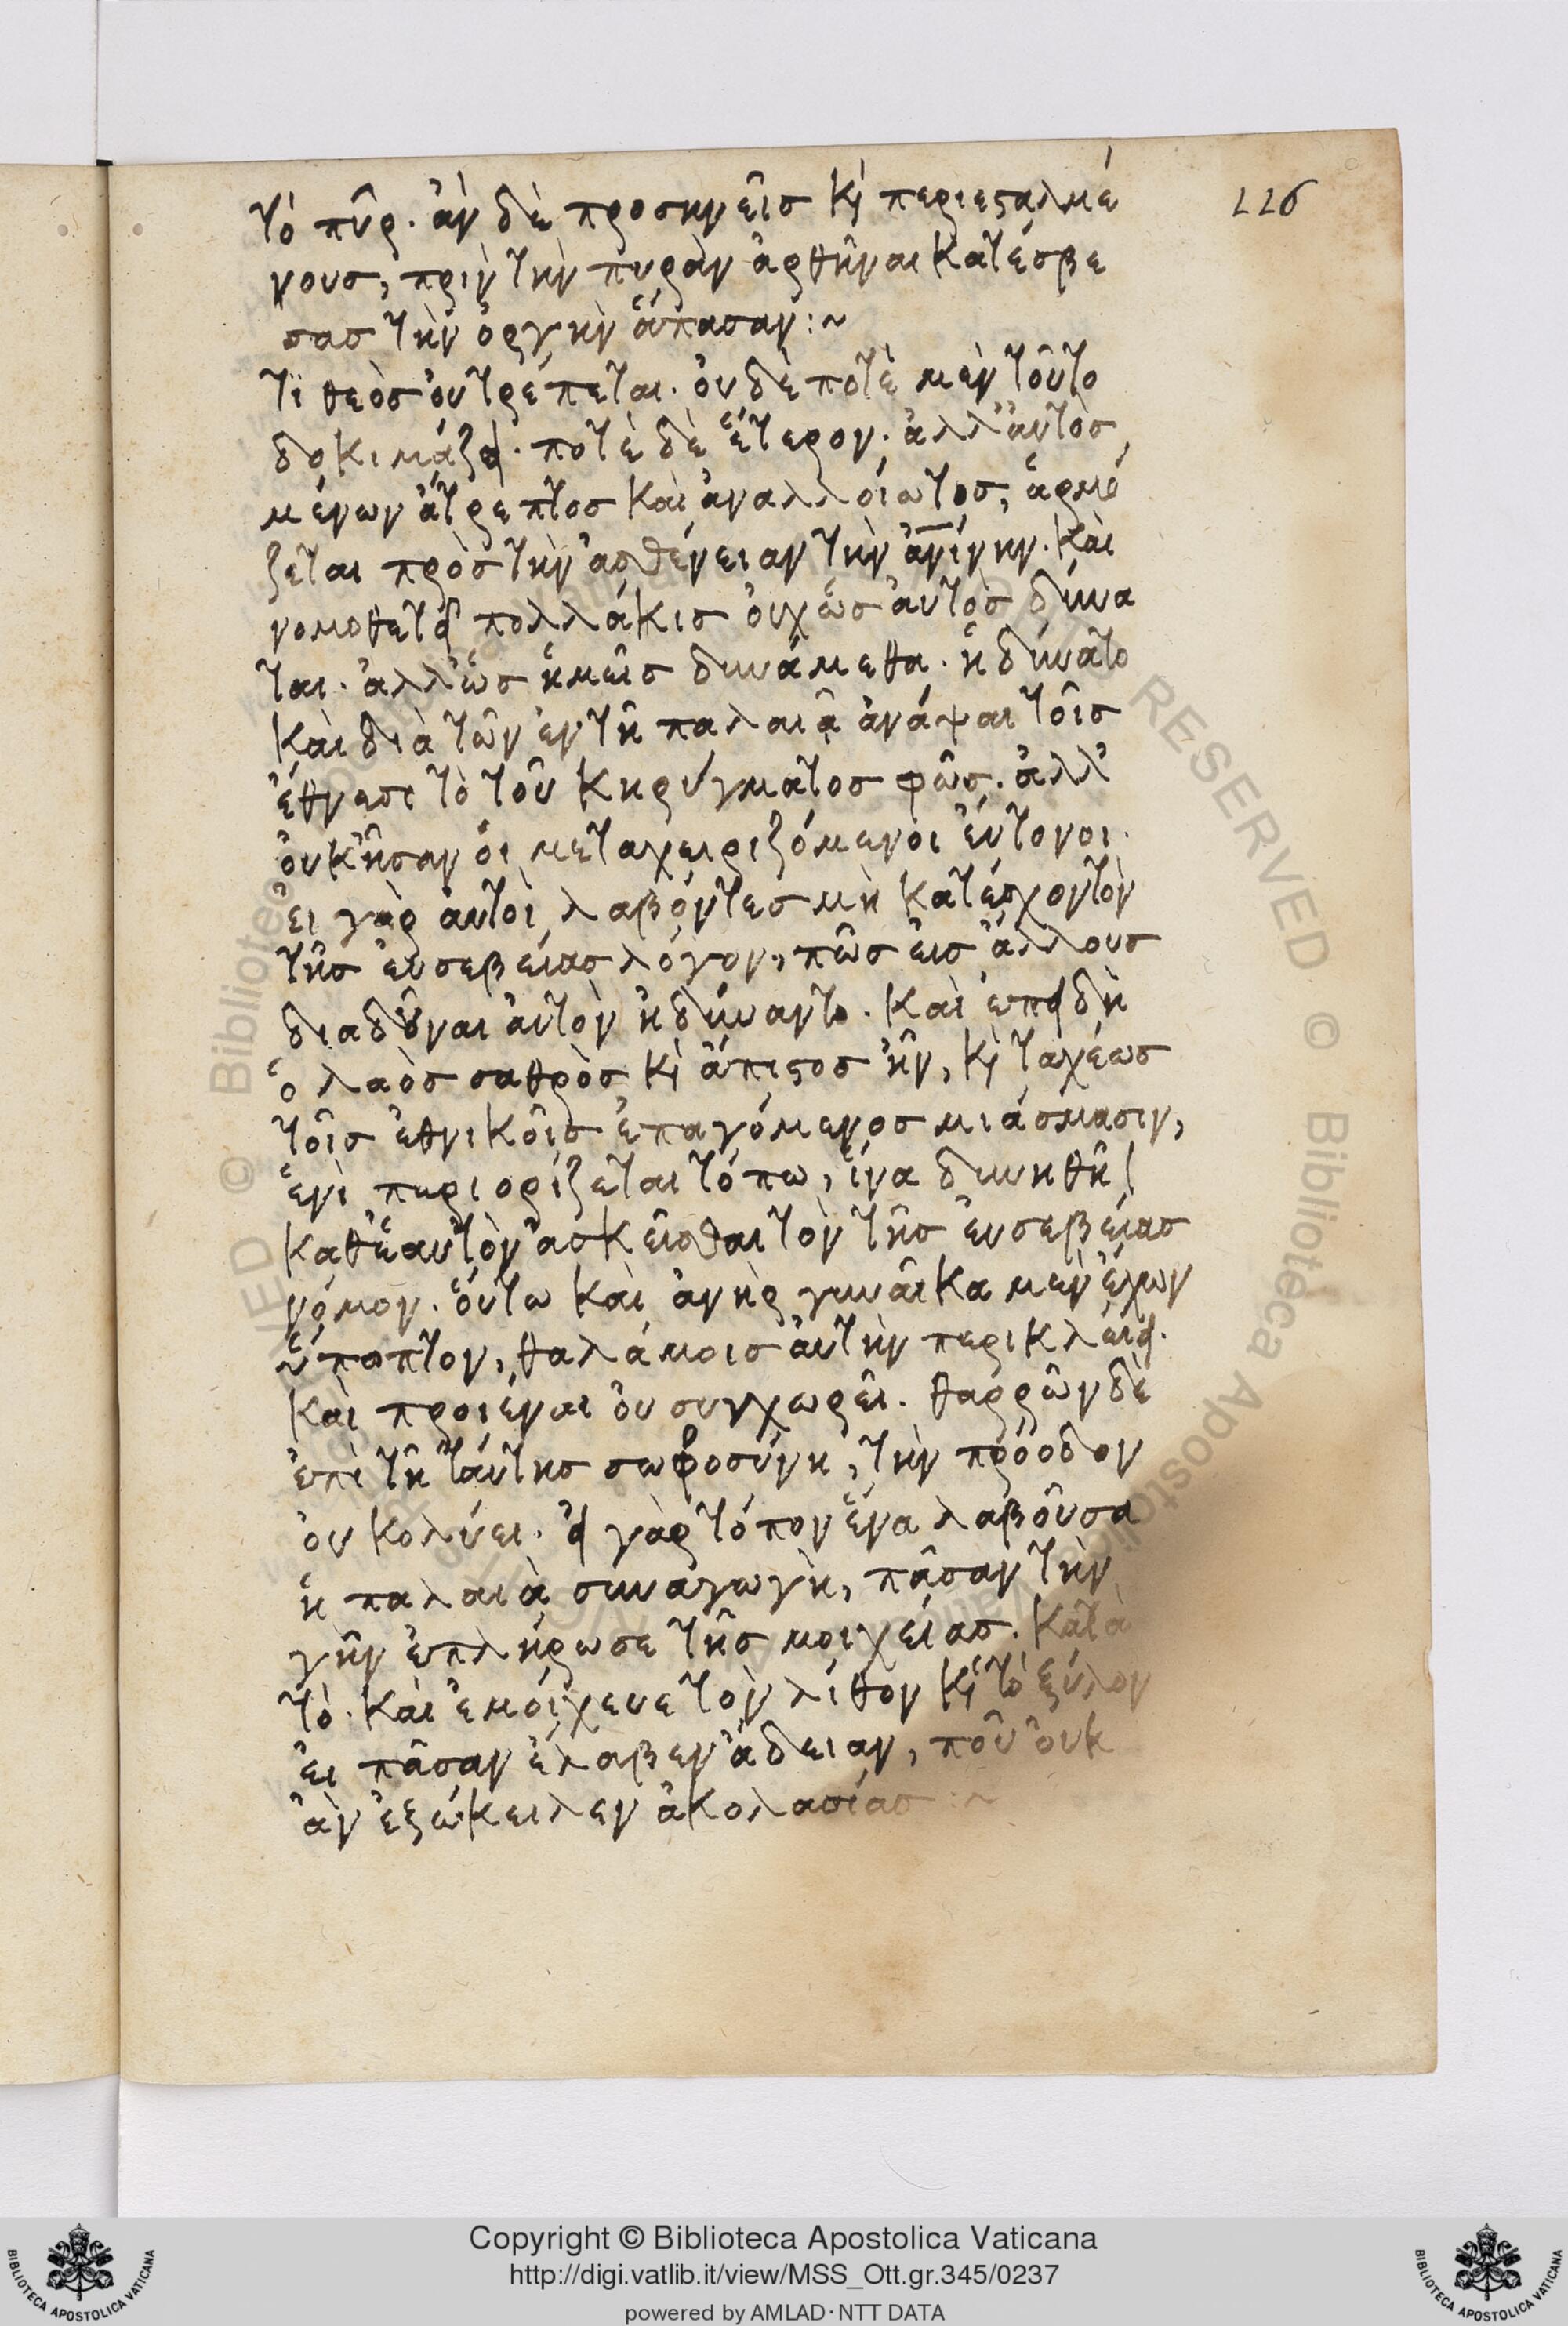 226
τὸ πῦρ. ἂν δὲ προσηνεῖσ κὶ περιεσταλμέ
νουσ, πρὶν τὴν πυρὰν ἀρθῆναι κατέσβε
σασ τὴν ὀργὴν ἅπασαν:~
Τϊ θεὸσ οὐ τρέπεται. οὐδὲ ποτὲ μὲν τοῦτο
δοκιμάζει. ποτὲ δὲ ἕτερον. ἀλλ' αὐτὸσ
μένων ἄτρεπτοσ καὶ ἀναλλοίωτοσ, ἁρμό
ζεται πρὸσ τὴν ἀσθένειαν τὴν ἀνίνην. καὶ
νομοθετεῖ πολλάκισ οὐχ ὡσ αὐτὸσ δύνα
ται. ἀλλ' ὡσ ἡμεῖσ δυνάμεθα. ἠδύνατο
καὶ διὰ τῶν ἐν τῆ παλαιᾶ ἀνάψαι τοῖσ
ἔθνεσι τὸ τοῦ κηρύγματοσ φῶσ. ἀλλ'
οὐκ ἦσαν οἱ μεταχειριζόμενοι εὔτονοι.
εἰ γὰρ αὐτοὶ λαβόντεσ μὴ κατέσχον τὸν
τῆσ εὐσεβείασ λόγον, πῶσ εἰσ ἄλλουσ
διαδοῦναι αὐτὸν ἠδύναντο. καὶ ἐπειδὴ
ὁ λαὸσ σαθρὸσ κὶ ἄπιστοσ ἦν, κὶ ταχέωσ
τοῖσ ἐθνικοῖσ ἐπαγόμενοσ μιάσμασιν,
ἑνὶ περιορίζεται τόπω, ἵνα δυνηθῆ
καθ' ἑαυτὸν ἀσκεῖσθαι τὸν τῆσ εὐσεβείασ
νόμον. οὕτω καὶ ἀνὴρ γυναῖκα μὲν ἔχων
ὕποπτον, θαλάμοισ αὐτὴν περικλείει.
καὶ προιέναι οὐ συγχωρεῖ. θαρρῶν δὲ
ἐπὶ τῆ ταύτησ σωφροσύνη, τὴν πρόοδον
οὐ κολύει. εἰ γὰρ τόπον ἕνα λαβοῦσα
ἡ παλαιὰ συναγωγὴ, πᾶσαν τὴν
γῆν ἐπλήρωσε τῆσ μοιχείασ. κατὰ
τὸ. καὶ ἐμοίχευε τὸν λίθον κὶ τὸ ξύλον
εἰ πᾶσαν ἔλαβεν ἄδειαν, ποῦ οὐκ
ἂν ἐξώκειλεν ἀκολασίασ:~
Copyright © Biblioteca Apostolica Vaticana
http://digi.vatlib.it/view/MSS_Ott.gr.345/0237
powered by AMLAD·NTT DATA
BIBLIOTECA APOSTOLICA VATICANA
BIBLIOTECA APOSTOLICA VATICANA